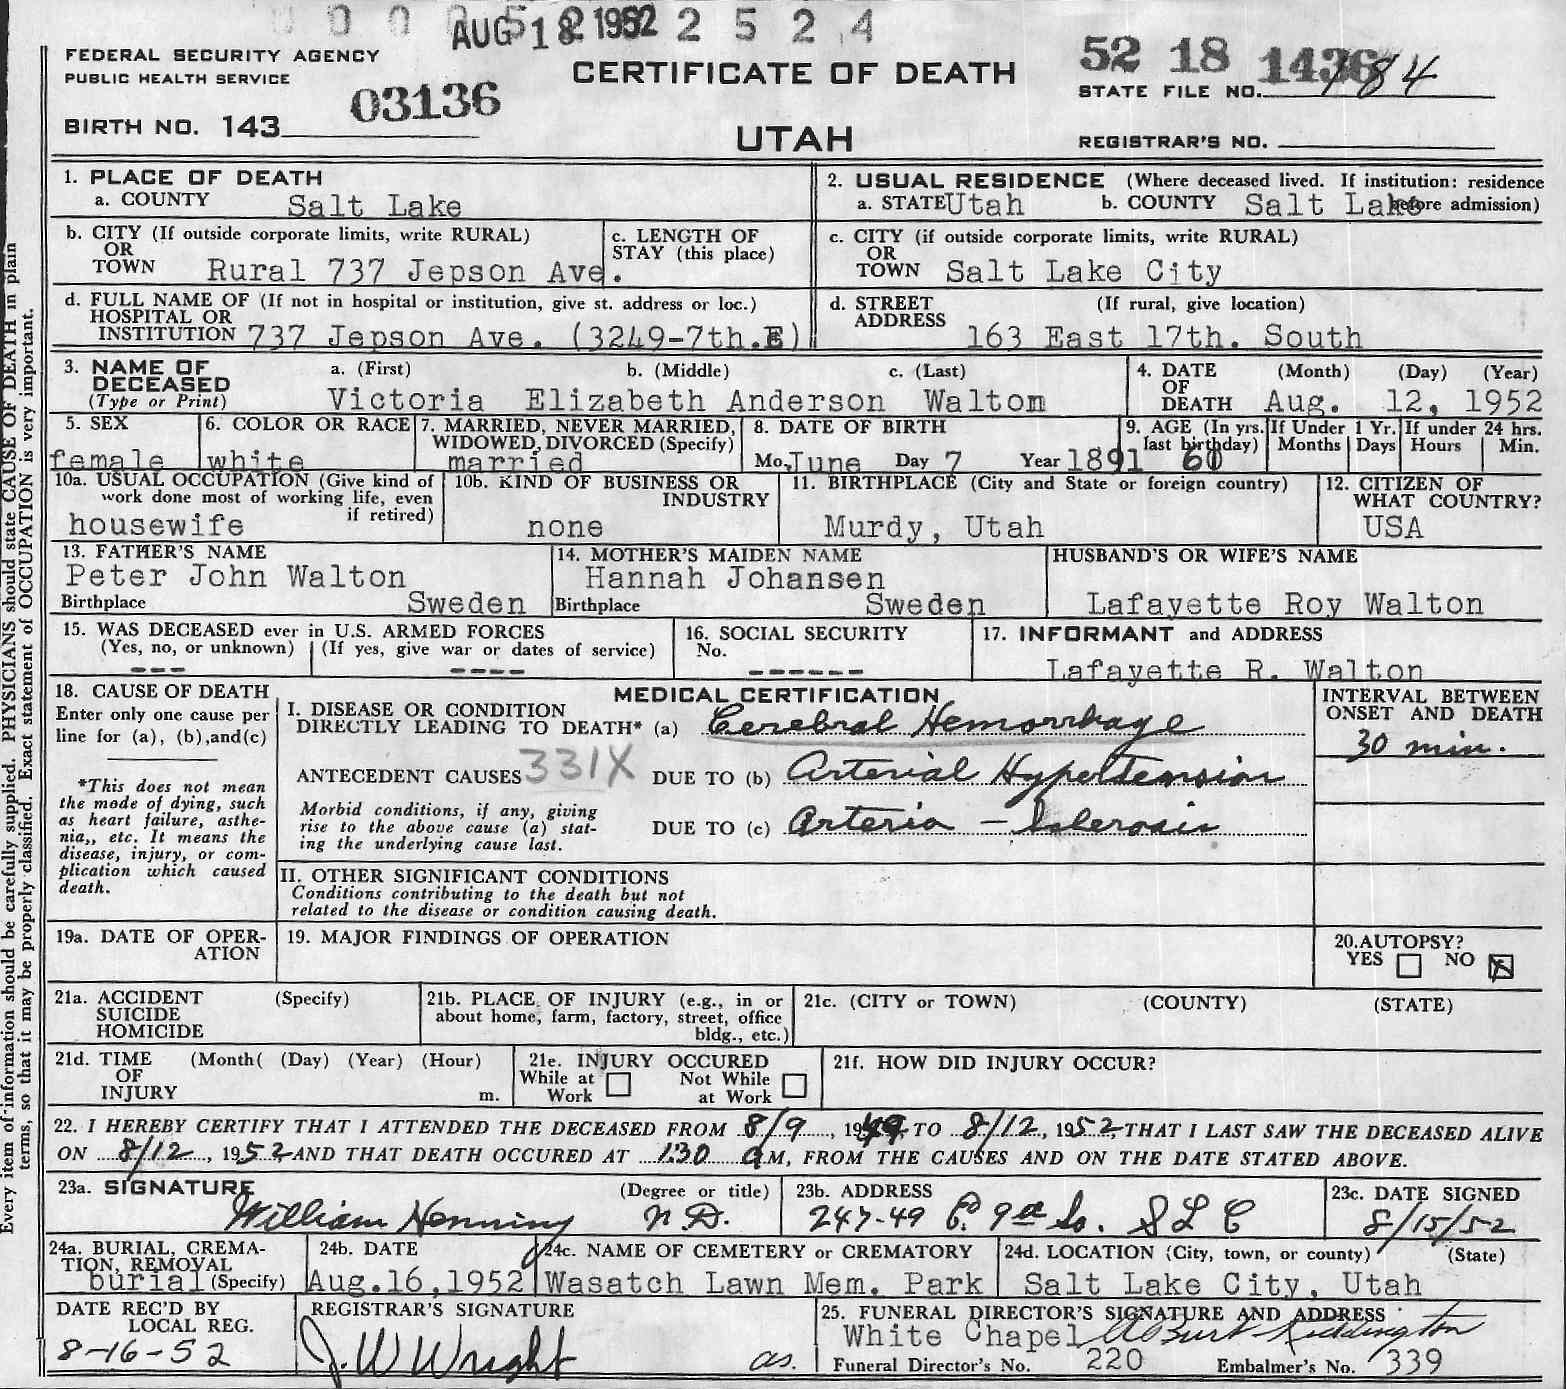 AUG 18 1952 2 5 2 4
FEDERAL SECURITY AGENCY
PUBLIC HEALTH SERVICE
CERTIFICATE OF DEATH
52 18 1436
STATE FILE NO. 184
03136
BIRTH NO. 143
UTAH
REGISTRAR'S NO.
1. PLACE OF DEATH
a. COUNTY Salt Lake
2. USUAL RESIDENCE (Where deceased lived. If institution: residence before admission)
a. STATE Utah b. COUNTY Salt Lake
b. CITY (If outside corporate limits, write RURAL)
OR
TOWN Rural 737 Jepson Ave.
c. LENGTH OF
STAY (this place)
c. CITY (if outside corporate limits, write RURAL)
OR
TOWN Salt Lake City
d. FULL NAME OF (If not in hospital or institution, give st. address or loc.)
HOSPITAL OR
INSTITUTION 737 Jepson Ave. (3249-7th.E)
d. STREET (If rural, give location)
ADDRESS 163 East 17th. South
3. NAME OF a. (First) b. (Middle) c. (Last)
DECEASED
(Type or Print) Victoria Elizabeth Anderson Walton
4. DATE (Month) (Day) (Year)
OF
DEATH Aug. 12, 1952
5. SEX
female
6. COLOR OR RACE
white
7. MARRIED, NEVER MARRIED,
WIDOWED, DIVORCED (Specify)
married
8. DATE OF BIRTH
Mo. June Day 7 Year 1891
9. AGE (In yrs. last birthday)
If Under 1 Yr. Months Days
If under 24 hrs. Hours Min.
10a. USUAL OCCUPATION (Give kind of
work done most of working life, even
if retired)
housewife
10b. KIND OF BUSINESS OR
INDUSTRY
none
11. BIRTHPLACE (City and State or foreign country)
Murdy, Utah
12. CITIZEN OF
WHAT COUNTRY?
USA
13. FATHER'S NAME
Peter John Walton
Birthplace Sweden
14. MOTHER'S MAIDEN NAME
Hannah Johansen
Birthplace Sweden
HUSBAND'S OR WIFE'S NAME
Lafayette Roy Walton
15. WAS DECEASED ever in U.S. ARMED FORCES
(Yes, no, or unknown) (If yes, give war or dates of service)
--- ----
16. SOCIAL SECURITY
No.
------
17. INFORMANT and ADDRESS
Lafayette R. Walton
18. CAUSE OF DEATH
Enter only one cause per
line for (a), (b), and (c)
*This does not mean
the mode of dying, such
as heart failure, asthe-
nia,, etc. It means the
disease, injury, or com-
plication which caused
death.
MEDICAL CERTIFICATION
I. DISEASE OR CONDITION
DIRECTLY LEADING TO DEATH* (a) Cerebral Hemorrhage
ANTECEDENT CAUSES 331X DUE TO (b) Arterial Hypertension
Morbid conditions, if any, giving
rise to the above cause (a) stat-
ing the underlying cause last.
DUE TO (c) Arterio - Sclerosis
INTERVAL BETWEEN
ONSET AND DEATH
30 min.
II. OTHER SIGNIFICANT CONDITIONS
Conditions contributing to the death but not
related to the disease or condition causing death.
19a. DATE OF OPER-
ATION
19. MAJOR FINDINGS OF OPERATION
20. AUTOPSY?
YES NO
21a. ACCIDENT (Specify)
SUICIDE
HOMICIDE
21b. PLACE OF INJURY (e.g., in or
about home, farm, factory, street, office
bldg., etc.)
21c. (CITY or TOWN) (COUNTY) (STATE)
21d. TIME (Month( (Day) (Year) (Hour)
OF
INJURY m.
21e. INJURY OCCURED
While at Work Not While at Work
21f. HOW DID INJURY OCCUR?
22. I HEREBY CERTIFY THAT I ATTENDED THE DECEASED FROM 8/9, 1949, TO 8/12, 1952, THAT I LAST SAW THE DECEASED ALIVE
ON 8/12, 1952 AND THAT DEATH OCCURED AT 1:30 a M, FROM THE CAUSES AND ON THE DATE STATED ABOVE.
23a. SIGNATURE (Degree or title)
William Henning M.D.
23b. ADDRESS
247-49 E. 9th So. S L C
23c. DATE SIGNED
8/15/52
24a. BURIAL, CREMA-
TION, REMOVAL
burial (Specify)
24b. DATE
Aug.16,1952
24c. NAME OF CEMETERY or CREMATORY
Wasatch Lawn Mem. Park
24d. LOCATION (City, town, or county) (State)
Salt Lake City, Utah
DATE REC'D BY
LOCAL REG.
8-16-52
REGISTRAR'S SIGNATURE
J. W. Wright as.
25. FUNERAL DIRECTOR'S SIGNATURE AND ADDRESS
White Chapel
Funeral Director's No. 220 Embalmer's No. 339
Every item of information should be carefully supplied. PHYSICIANS should state CAUSE OF DEATH in plain
terms, so that it may be properly classified. Exact statement of OCCUPATION is very important.